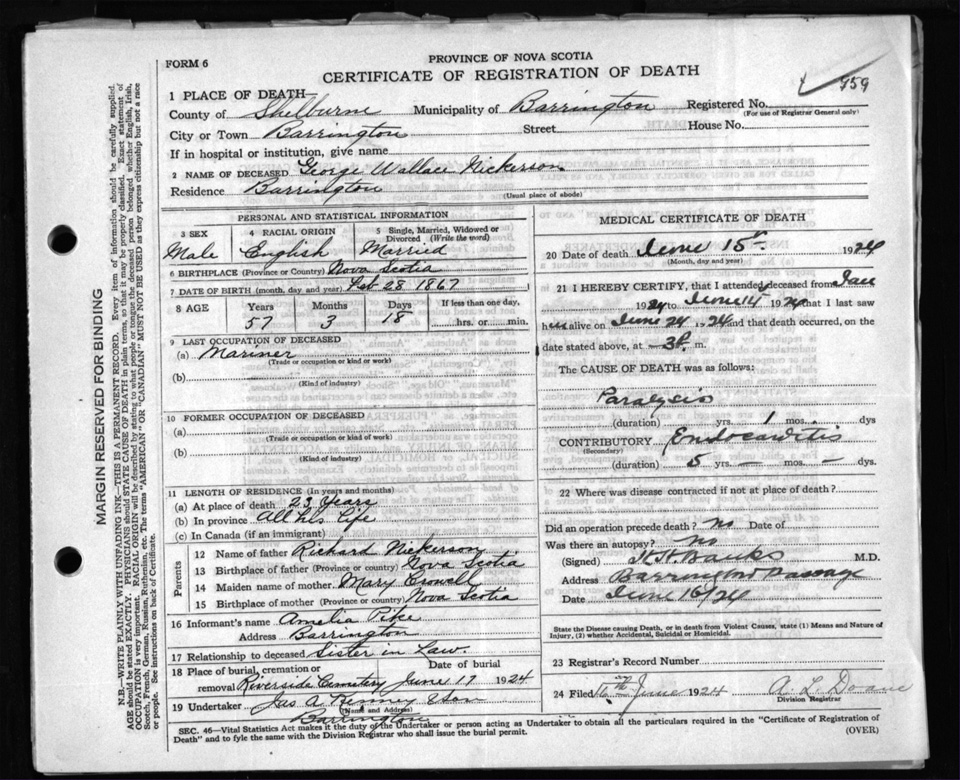 PROVINCE OF NOVA SCOTIA
FORM 6
CERTIFICATE OF REGISTRATION OF DEATH
959
1 PLACE OF DEATH—
County of Shelburne Municipality of Barrington Registered No.
(For use of Registrar General only)
City or Town Barrington Street House No.
If in hospital or institution, give name
2 NAME OF DECEASED George Wallace Nickerson
Residence Barrington
(Usual place of abode)
MARGIN RESERVED FOR BINDING
N.B.—WRITE PLAINLY WITH UNFADING INK—THIS IS A PERMANENT RECORD. Every item of information should be carefully supplied.
AGE should be stated EXACTLY. PHYSICIANS should STATE CAUSE OF DEATH in plain terms, so that it may be properly classified. Exact statement of
OCCUPATION is very important. RACIAL ORIGIN will be described by stating to what people or tongue the deceased person belonged whether English, Irish,
Scotch, French, German, Russian, Ruthenian, etc. The terms "AMERICAN" or "CANADIAN" MUST NOT BE USED as they express citizenship but not a race
or people. See instructions on back of Certificate.
PERSONAL AND STATISTICAL INFORMATION
3 SEX 4 RACIAL ORIGIN 5 Single, Married, Widowed or
Divorced (Write the word)
Male English Married
6 BIRTHPLACE (Province or Country) Nova Scotia
7 DATE OF BIRTH (month, day and year) Feb 28 1867
8 AGE Years Months Days If less than one day,
57 3 18 hrs. or min.
9 LAST OCCUPATION OF DECEASED
(a) Mariner
(Trade or occupation or kind or work)
(b)
(Kind of industry)
10 FORMER OCCUPATION OF DECEASED
(a)
(Trade or occupation or kind of work)
(b)
(Kind of industry)
11 LENGTH OF RESIDENCE (In years and months)
(a) At place of death 23 Years
(b) In province All his life
(c) In Canada (if an immigrant)
Parents
12 Name of father Richard Nickerson
13 Birthplace of father (Province or Country) Nova Scotia
14 Maiden name of mother Mary Crowell
15 Birthplace of mother (Province or country) Nova Scotia
16 Informant's name Amelia Pike
Address Barrington
17 Relationship to deceased Sister in Law.
18 Place of burial, cremation or Date of burial
removal Riverside Cemetery June 17 1924
19 Undertaker Jas A Kenney & Son
(Name and Address)
Barrington
MEDICAL CERTIFICATE OF DEATH
20 Date of death June 15th 1924
(Month, day and year)
21 I HEREBY CERTIFY, that I attended deceased from Jan
1924 to June 15 1924 that I last saw
him alive on June 24 1924 and that death occurred, on
date stated above, at 3 P. m.
The CAUSE OF DEATH was as follows:
Paralysis
(duration) yrs. 1 mos. dys
CONTRIBUTORY Endocarditis
(Secondary)
(duration) 5 yrs. — mos. — dys.
22 Where was disease contracted if not at place of death?
Did an operation precede death? No Date of
Was there an autopsy? No
(Signed) Banks M.D.
Address Barrington Passage
Date June 16/24
State the Disease causing Death, or in death from Violent Causes, state (1) Means and Nature of
Injury, (2) whether Accidental, Suicidal or Homicidal.
23 Registrar's Record Number
24 Filed 16th June 1924 A. L. Doane
Division Registrar
SEC. 46—Vital Statistics Act makes it the duty of the Undertaker or person acting as Undertaker to obtain all the particulars required in the "Certificate of Registration of
Death" and to fyle the same with the Division Registrar who shall issue the burial permit. (OVER)